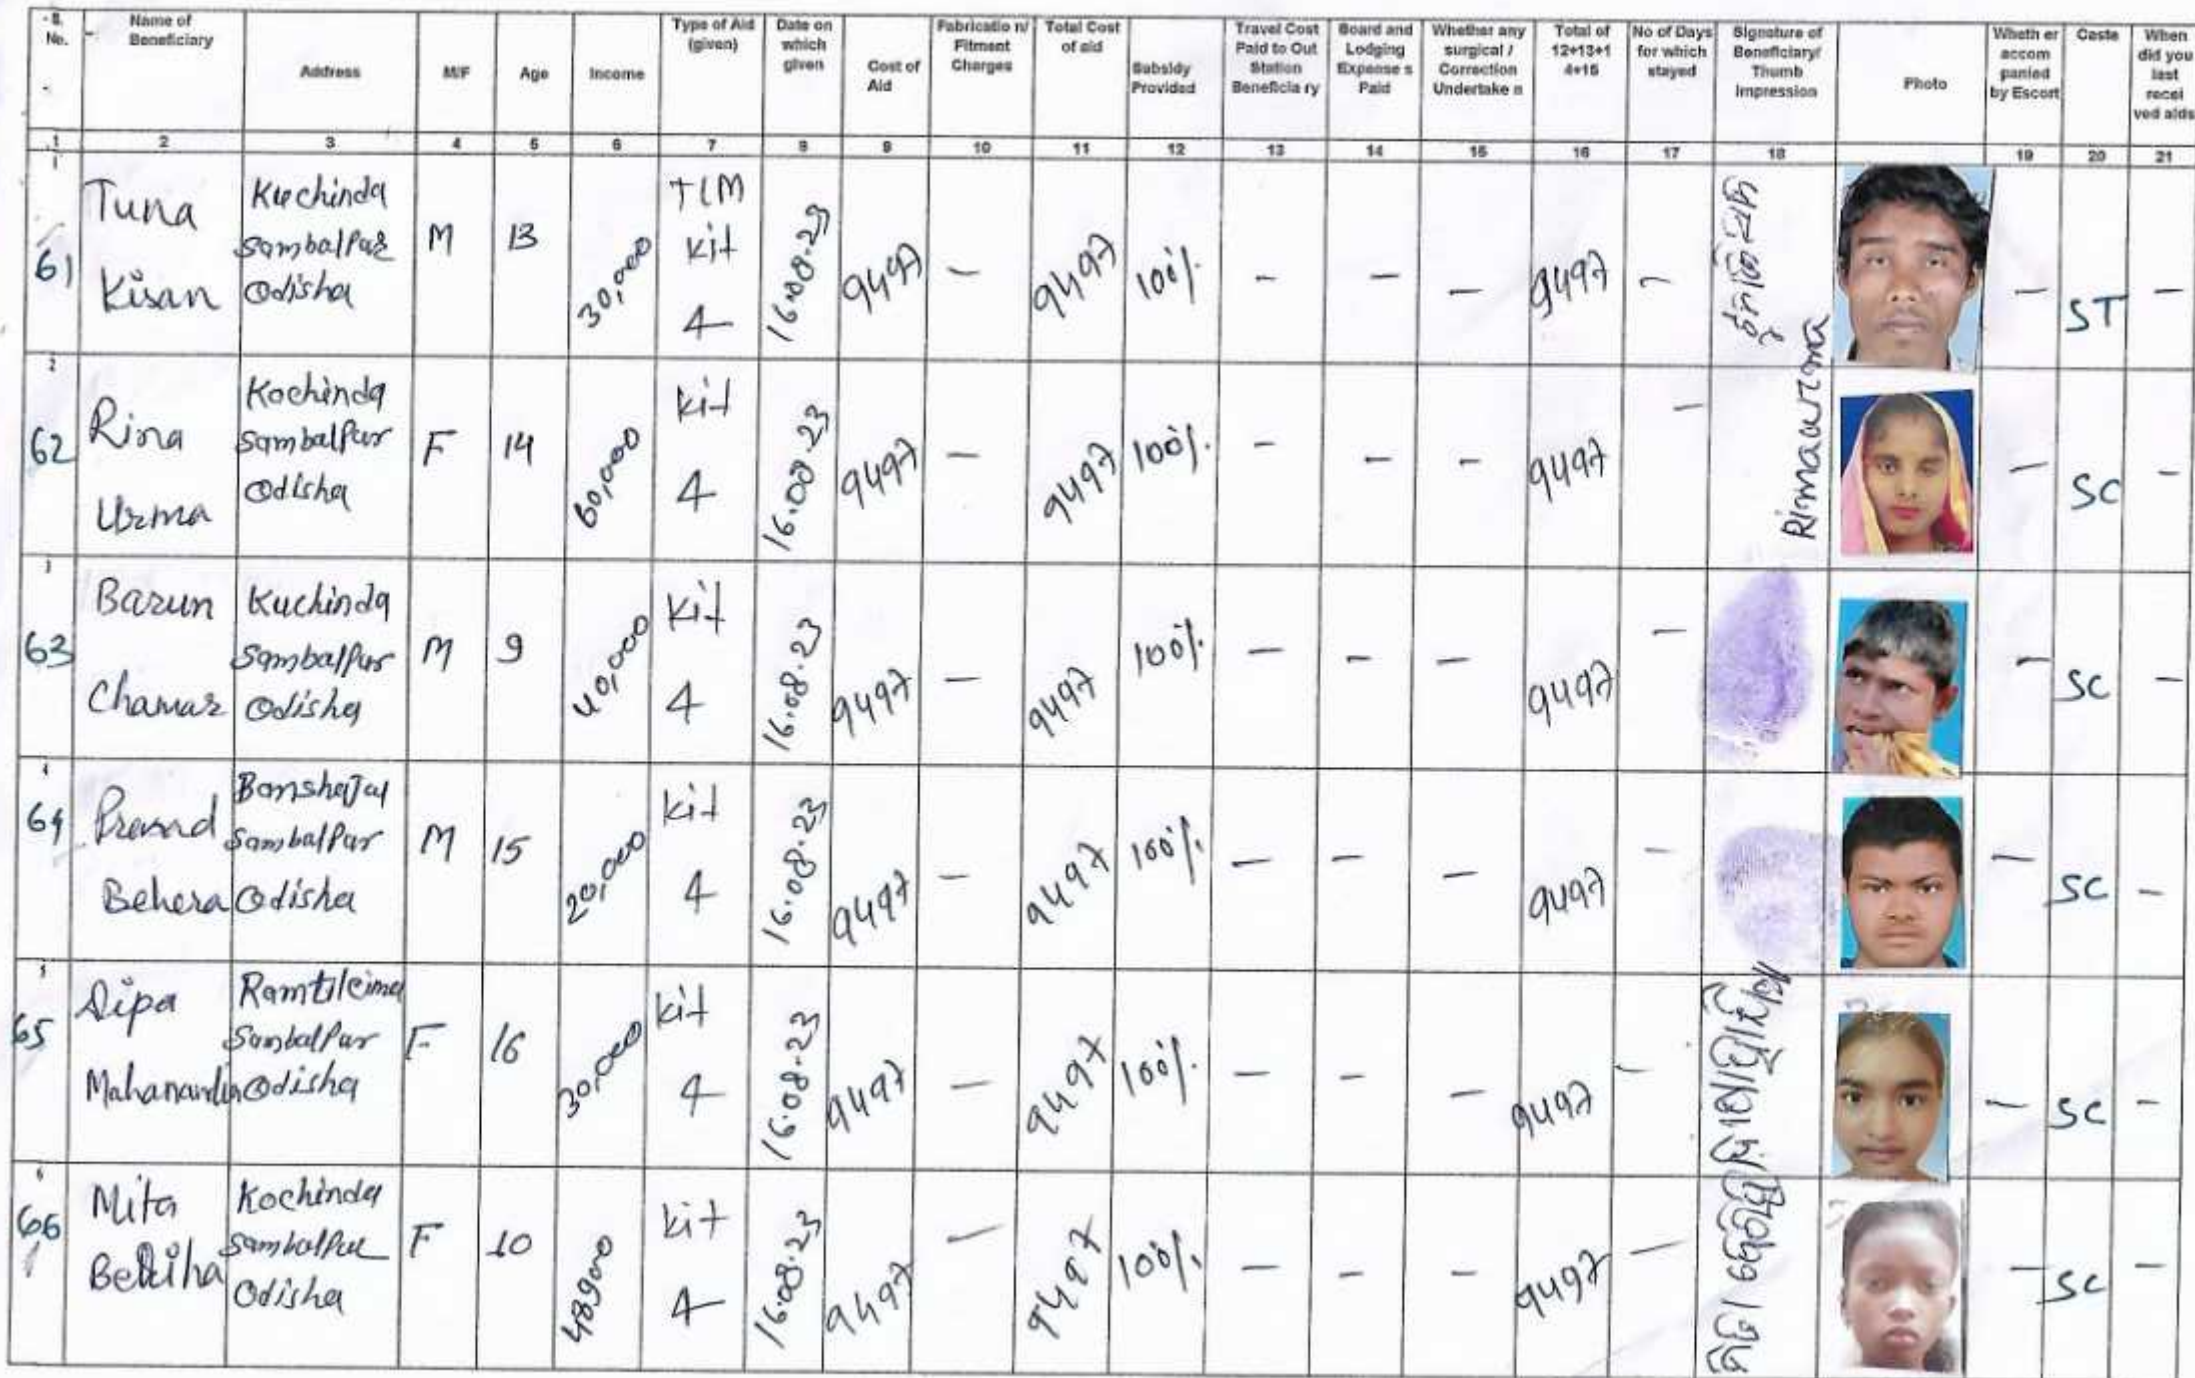 S. No. Name of Beneficiary Address M/F Age Income Type of Aid (given) Date on which given Cost of Aid Fabricatio n/ Fitment Charges Total Cost of aid Subsidy Provided Travel Cost Paid to Out Station Beneficia ry Board and Lodging Expense s Paid Whether any surgical / Correction Undertake n Total of 12+13+1 4+15 No of Days for which stayed Signature of Beneficiary/ Thumb Impression Photo Wheth er accom panied by Escort Caste When did you last recei ved aids
1 2 3 4 5 6 7 8 9 10 11 12 13 14 15 16 17 18 19 20 21
1 61 Tuna Kisan Kuchinda Sambalpur Odisha M 13 30,000 TLM kit 4 16.08.23 9497 — 9497 100% — — — 9497 — — ST —
2 62 Rina Urma Kochinda Sambalpur Odisha F 14 60,000 kit 4 16.08.23 9497 — 9497 100% — — — 9497 — Rinaurma — SC —
3 63 Barun Chamar Kuchinda Sambalpur Odisha M 9 40,000 kit 4 16.08.23 9497 — 9497 100% — — — 9497 — — SC —
4 64 Behera Sambalpur Odisha M 15 20,000 kit 4 16.08.23 9497 — 9497 100% — — — 9497 — — SC —
5 65 Dipa Mahanandia Sambalpur Odisha F 16 30,000 kit 4 16.08.23 9497 — 9497 100% — — — 9497 — — SC —
6 66 Mita Kochinda Sambalpur Odisha F 10 48900 kit 4 16.08.23 9497 — 9497 100% — — — 9497 — — SC —